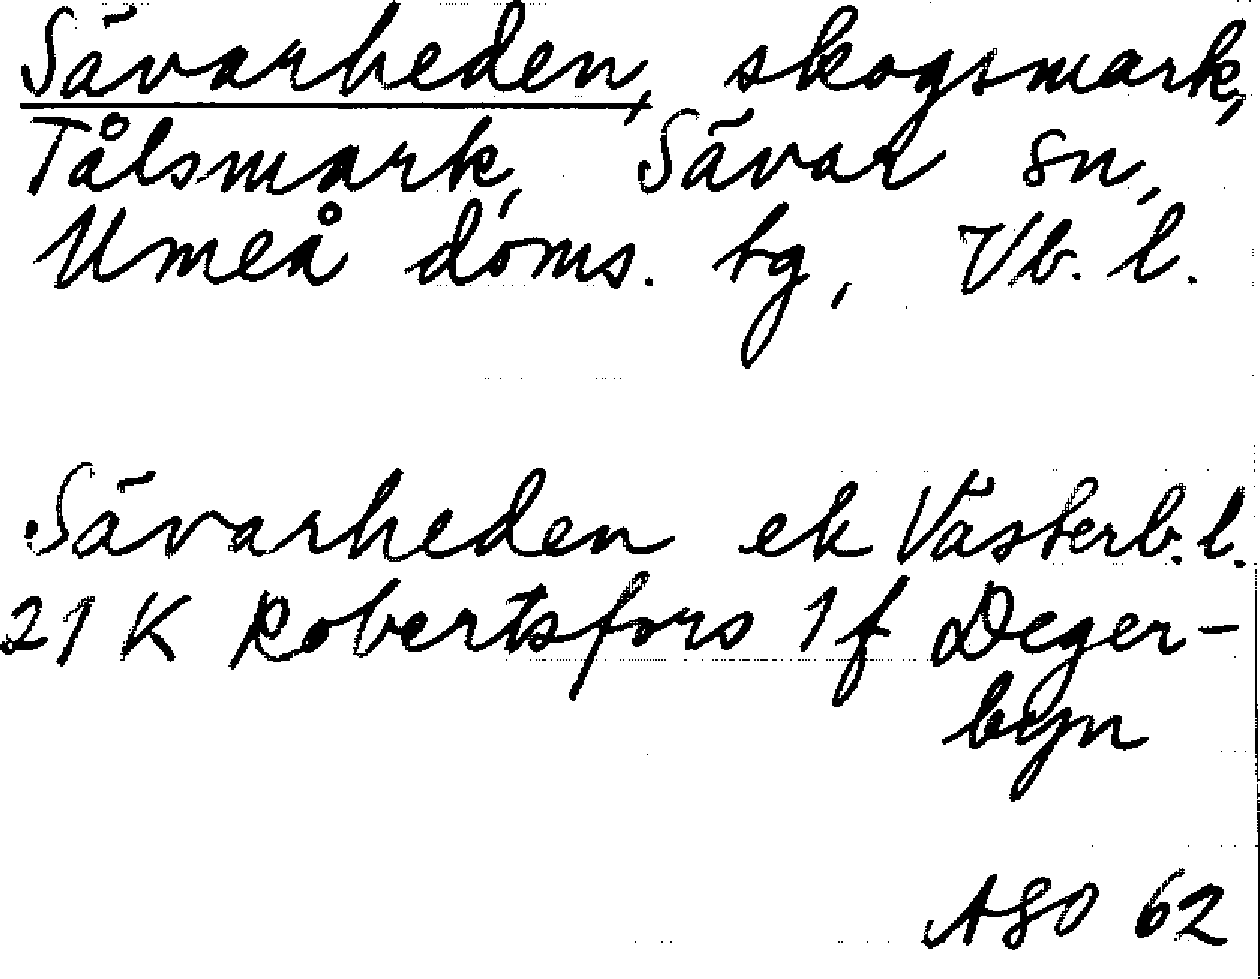 Sävarheden, skogsmark,
Tålsmark, Sävar sn,
Umeå doms. tg, Vb. l.
Sävarheden ek Västerb. l.
21 K Robertsfors 1 f Deger-
byn
ASO 62